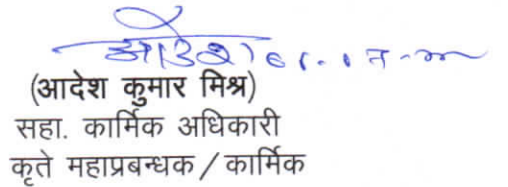 (आदेश कुमार मिश्र)
सहा. कार्मिक अधिकारी
कृते महाप्रबन्धक / कार्मिक